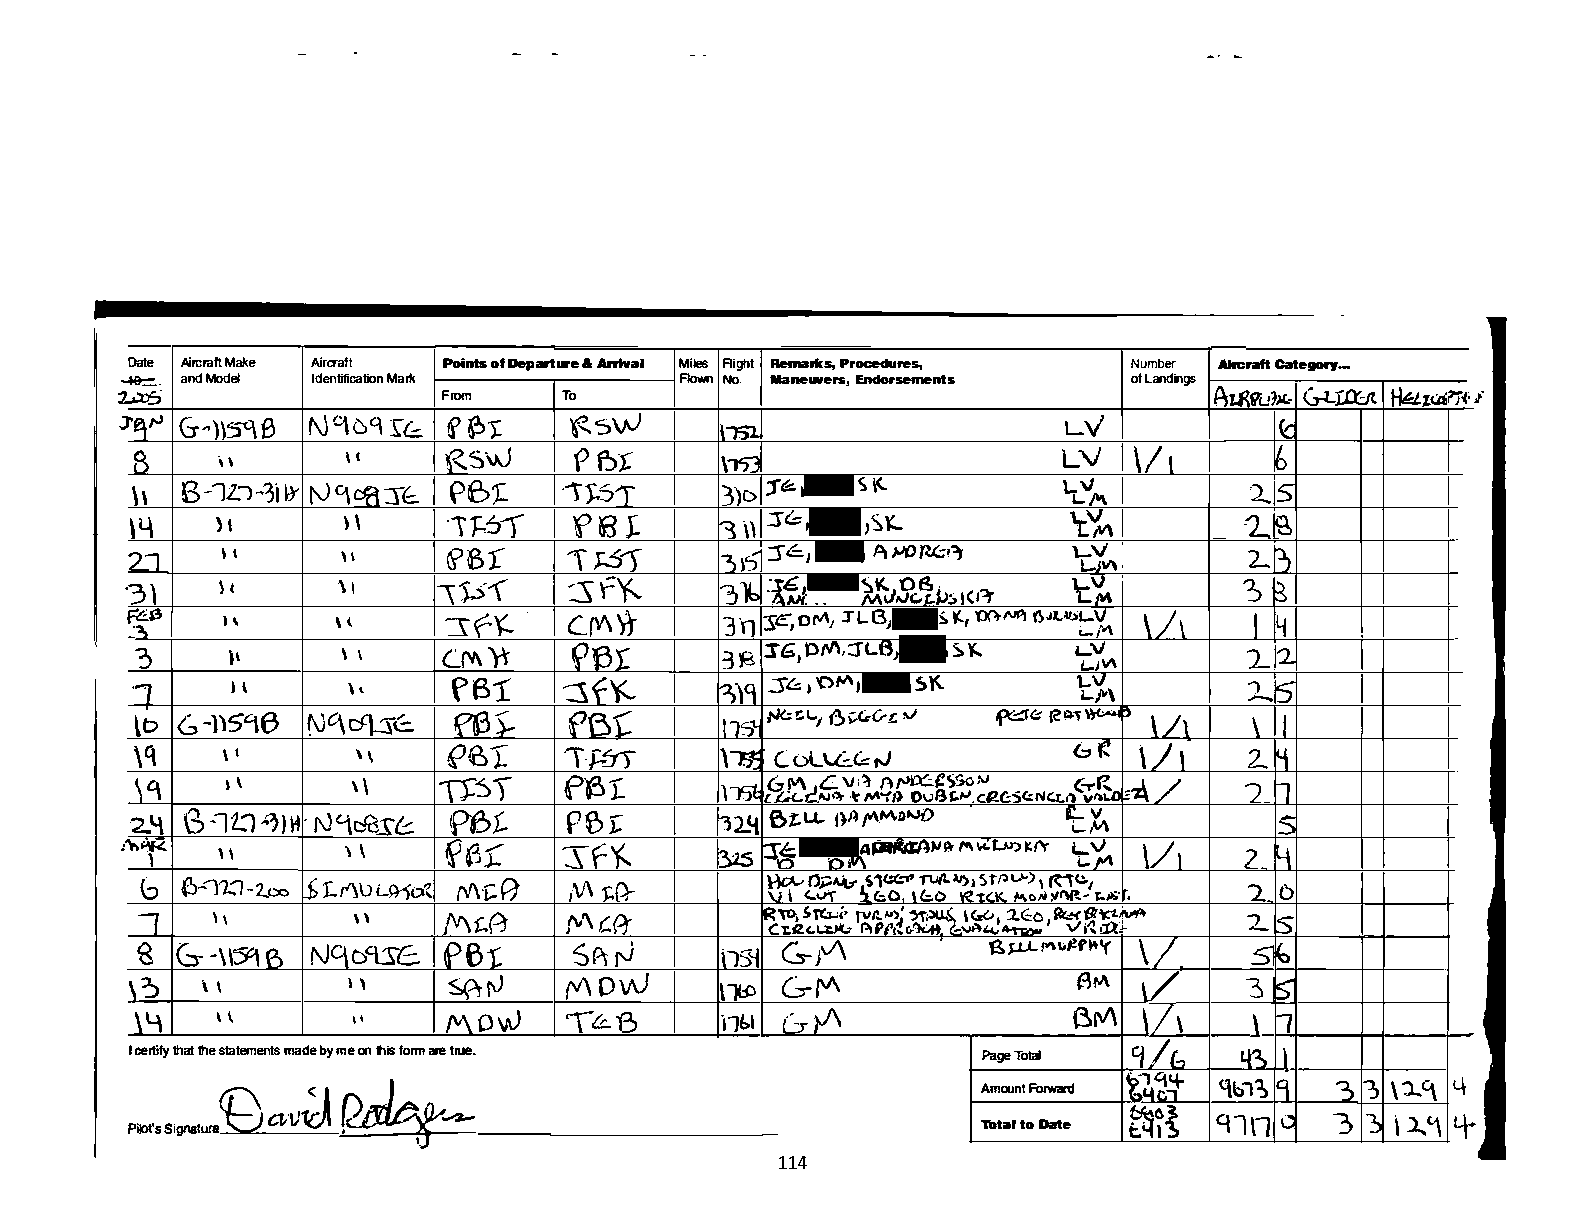 Date Aircraft Make and Model Aircraft Identification Mark Points of Departure & Arrival Miles Flown Flight No. Remarks, Procedures, Maneuvers, Endorsements Number of Landings Aircraft Category...
2005 From To AIRPLANE GLIDER HELICOPTER
JAN G-1159B N909JE PBI RSW 1752 LV 6
8 " " RSW PBI 1753 LV 1/1 6
11 B-727-31H N908JE PBI TIST 310 JE, SK LV LM 2 5
14 " " TIST PBI 311 JE, ,SK LV LM 2 8
27 " " PBI TIST 315 JE, ANDREA LV LM 2 3
31 " " TIST JFK 316 JE, SK, DB, LV LM 3 8
FEB 3 " " JFK CMH 317 JE, DM, JLB, SK, DANA BURNS LV LM 1/1 1 4
3 " " CMH PBI 318 JE, DM, JLB, SK LV LM 2 2
7 " " PBI JFK 319 JE, DM, SK LV LM 2 5
10 G-1159B N909JE PBI PBI 1754 PETE 1/1 1 1
19 " " PBI TIST 1755 COLLEEN GR 1/1 2 4
19 " " TIST PBI 1756 GM, EVA ANDERSSON GR 1/ 2 7
& MYA DUBIN, CRESENCIA VALDEZ
24 B-727-31H N908JE PBI PBI 324 BILL HAMMOND LV LM 5
MAR 1 " " PBI JFK 325 JE DM LV LM 1/1 2 4
6 B-727-200 SIMULATOR MIA MIA HOLDING, STEEP TURNS, STALLS, RTO, 2 0
V1 CUT 2EO, 1EO RICK
7 " " MIA MIA RTO, STEEP TURNS, STALLS, 1EO, 2EO, 2 5
CIRCLING APPROACH, EVALUATION
8 G-1159B N909JE PBI SAN 1759 GM BILL MURPHY 1/ 5 6
13 " " SAN MDW 1760 GM BM 1/ 3 5
14 " " MDW TEB 1761 GM BM 1/1 1 7
I certify that the statements made by me on this form are true.
Page Total 9/6 43 1
Amount Forward 6794 6407 9673 9 3 3 129 4
Pilot's Signature David Rodgers
Total to Date 6803 6413 9717 0 3 3 129 4
114